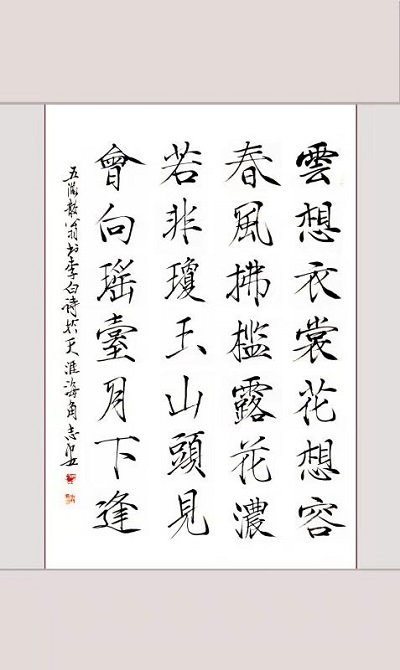 雲想衣裳花想容
春風拂槛露花濃
若非瓊玉山頭見
會向瑶臺月下逢
翁书李白诗於天涯海角志